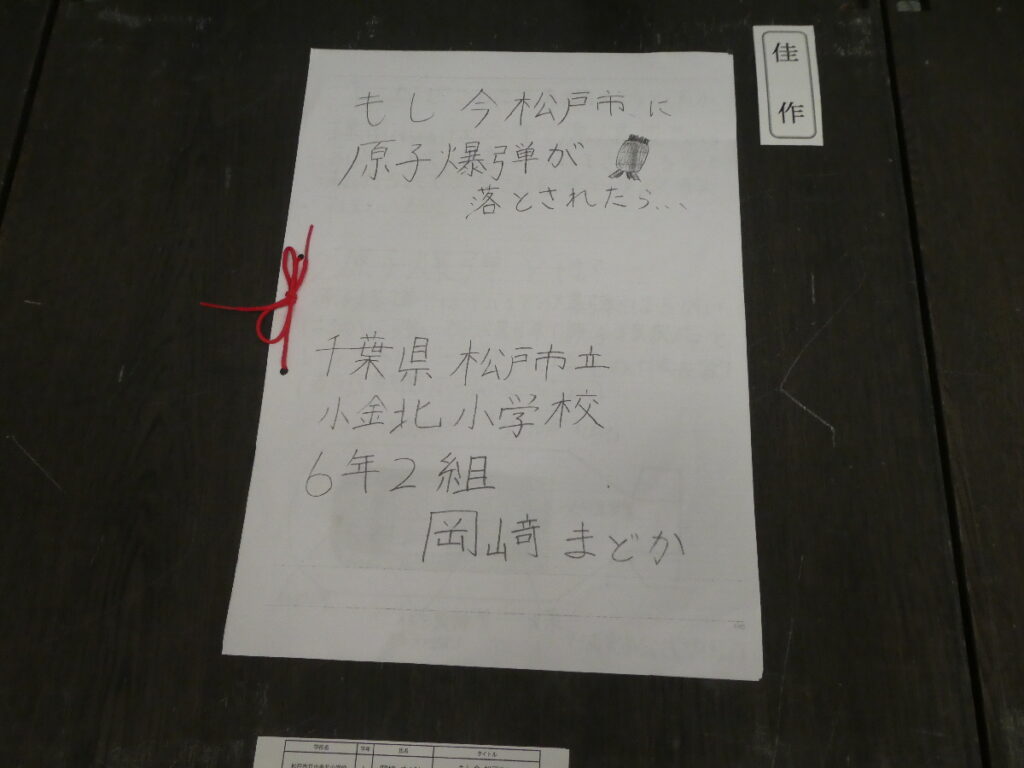 もし今松戸市に
原子爆弾が
落とされたら…
千葉県 松戸市立
小金北小学校
6年2組
岡﨑まどか
佳作
学校名 学年 氏名 タイトル